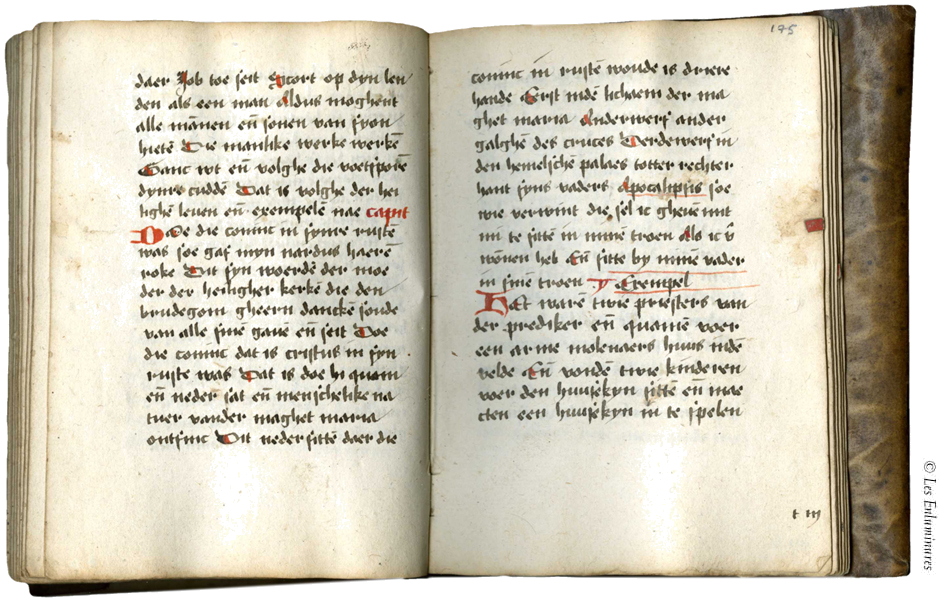 daer Job toe seit Scort op dyn len
den als een man Aldus moghent
alle mānen en̄ sonen van syon
hietē Die manlike werke werkē
Ganc wt en̄ volghe die voetspoRē
dynre cuddē Dat is volghe der hei
lighē leuen en̄ exempelē nae capit
DaDe die coninc in synre rustē
was soe gaf myn nardus haerē
roke Dit syn woerdē der moe
der der heiligher kerkē die den
brudegom gheern danckē soude
van alle sinē gauē en̄ seit Doe
die coninc dat is cristus in syn
ruste was Dat is doe hi quam
en̄ neder sat en̄ menschelike na
tuer vander maghet maria
ontfinc Dit neder sittē daer die
175
coninc in rustē woude is driere
hande Eerst indē lichaem der ma
ghet maria Anderwerf ander
galghē des cruces Derdewerf in
den hemelschē palaes totter rechter
hant syns vaders Apocalipsis soe
wie verwint die sel ic gheuē mit
mi te sittē in minē troen Als ic v̄
wonen heb En̄ sitte by minē vader
in sinē troen Exempel
Het warē twie priesters van
der prediker en̄ quamē voer
een arme molenaers huus indē
velde En̄ vondē twie kinderen
voer den huusekyn sittē en̄ mae
cten een huusekyn in te spelen
t iij
© Les Enluminures